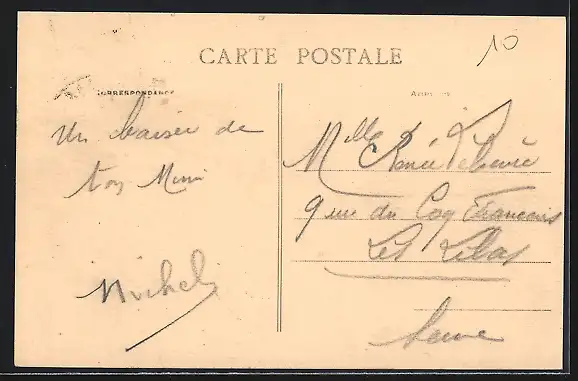 CARTE POSTALE
10
CORRESPONDANCE
un baiser de
ton Mimi
Michel
Mlle Renée
9 rue du Coq Francais
Les Lilas
Seine